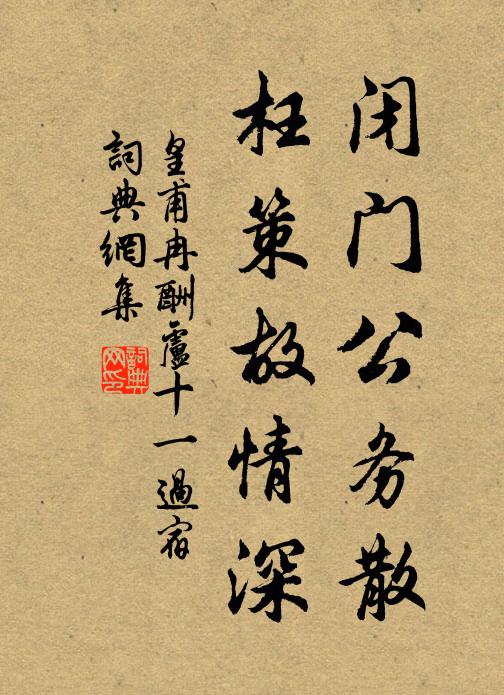 闭门公务散
枉策故情深
皇甫冉酬盧十一過宿
詞典網集
詞典网印